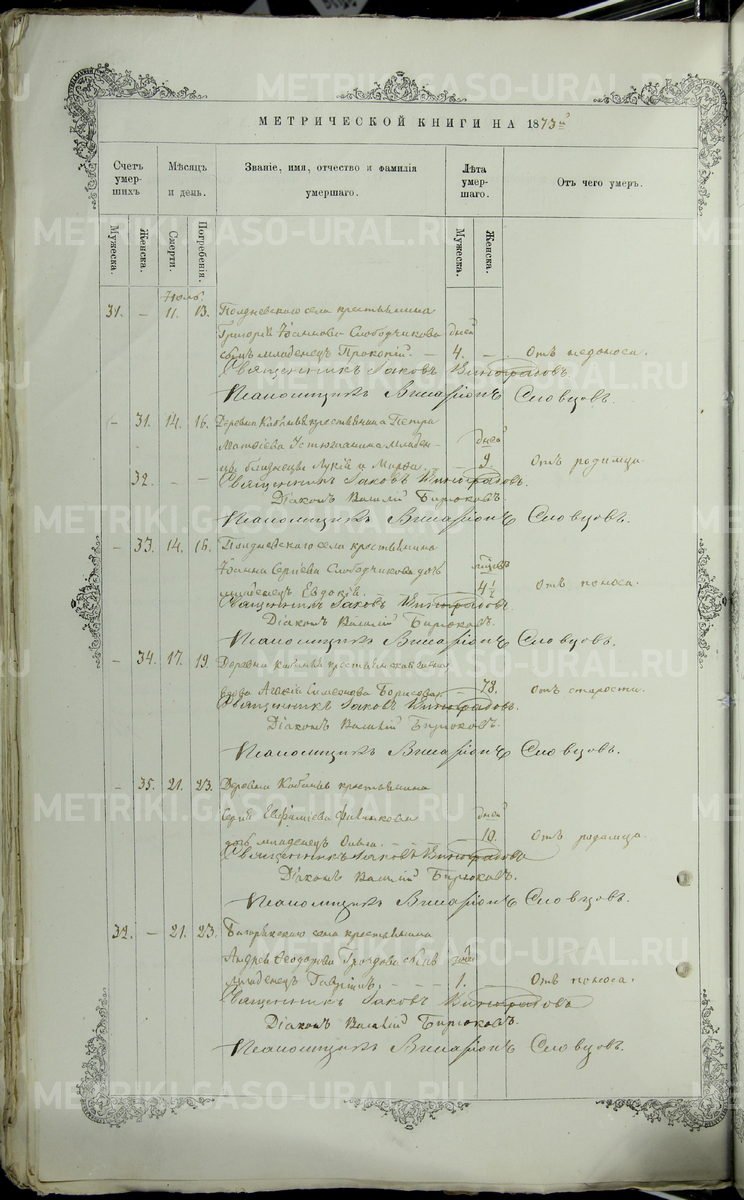 МЕТРИЧЕСКОЙ КНИГИ НА 1873
Счетъ умер-шихъ
Мѣсяцъ и день.
Званіе, имя, отчество и фамилія умершаго.
Лѣта умер-шаго.
Отъ чего умеръ.
Мужеска.
Женска.
Смерти.
Погребенія.
Мужеска.
Женска.
31. — 11. 13. Полдневскаго села крестьянина
Григорія Іоаннова Слободчикова дней
сынъ младенецъ Прокопій. — 4. — Отъ
Священникъ Іаковъ Виноградовъ.
Псаломщикъ Виссаріонъ Словцовъ.
— 31. 14. 16. Деревни крестьянина Петра
Матѳіева Устюжанина младен- дней
цы близнецы и — 9. Отъ родимца.
32. — —
Священникъ Іаковъ Виноградовъ.
Діаконъ Василій Бирюковъ.
Псаломщикъ Виссаріонъ Словцовъ.
— 33. 14. 16. Полдневскаго села крестьянина
Іоанна Сергіева Слободчикова дочь
младенецъ Евдокія. 4½ отъ поноса.
Священникъ Іаковъ Виноградовъ.
Діаконъ Василій Бирюковъ.
Псаломщикъ Виссаріонъ Словцовъ.
— 34. 17. 19. Деревни крестьянская
вдова Симеонова Борисова — 78. отъ старости.
Священникъ Іаковъ Виноградовъ.
Діаконъ Василій Бирюковъ.
Псаломщикъ Виссаріонъ Словцовъ.
— 35. 21. 23. Деревни крестьянина
Сергія Евфиміева дней
дочь младенецъ Ольга. — 10. Отъ родимца.
Священникъ Іаковъ Виноградовъ
Діаконъ Василій Бирюковъ.
Псаломщикъ Виссаріонъ Словцовъ.
32. — 21. 23. села крестьянина
Андрея Ѳеодорова сынъ
младенецъ Гавріилъ. — 1. Отъ поноса.
Священникъ Іаковъ Виноградовъ
Діаконъ Василій Бирюковъ.
Псаломщикъ Виссаріонъ Словцовъ.
METRIKI.GASO-URAL.RU